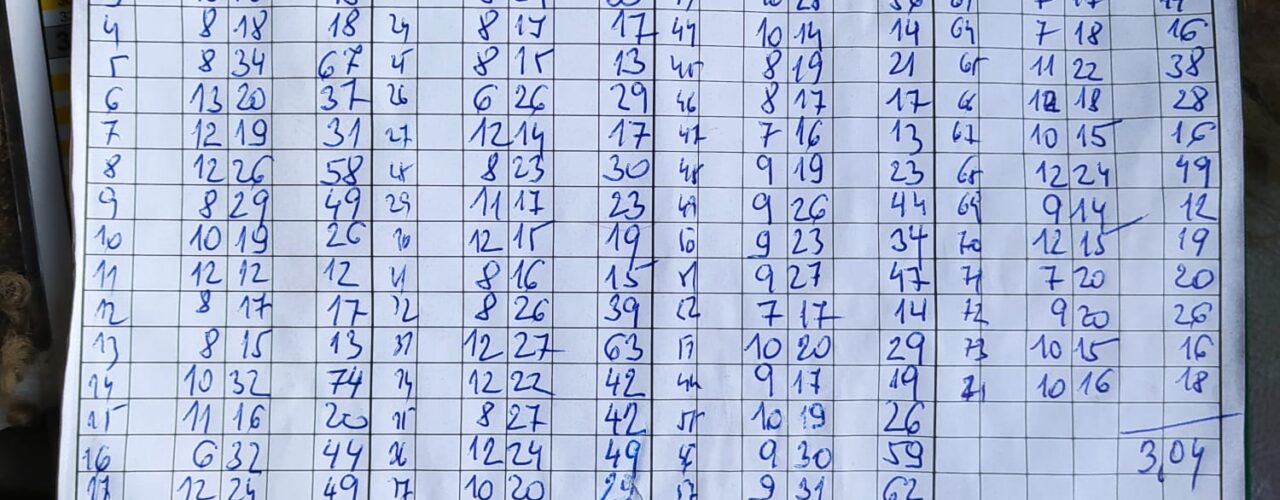 4 8 18 18 24 8 17 17 44 10 14 14 64 7 18 16
5 8 34 67 25 8 15 13 45 8 19 21 65 11 22 38
6 13 20 37 26 6 26 29 46 8 17 17 66 18 28
7 12 19 31 27 12 14 17 47 7 16 13 67 10 15 16
8 12 26 58 28 8 23 30 48 9 19 23 68 12 24 49
9 8 29 49 29 11 17 23 49 9 26 44 69 9 14 12
10 10 19 26 30 12 15 19 50 9 23 34 70 12 15 19
11 12 12 12 31 8 16 15 51 9 27 47 71 7 20 20
12 8 17 17 32 8 26 39 52 7 17 14 72 9 20 26
13 8 15 13 33 12 27 63 53 10 20 29 73 10 15 16
14 10 32 74 34 12 22 42 9 17 19 10 16 18
15 11 16 20 35 8 27 42 55 10 19 26
16 6 32 44 36 12 24 49 9 30 59 3,04
17 12 24 49 37 10 20 29 57 9 31 62